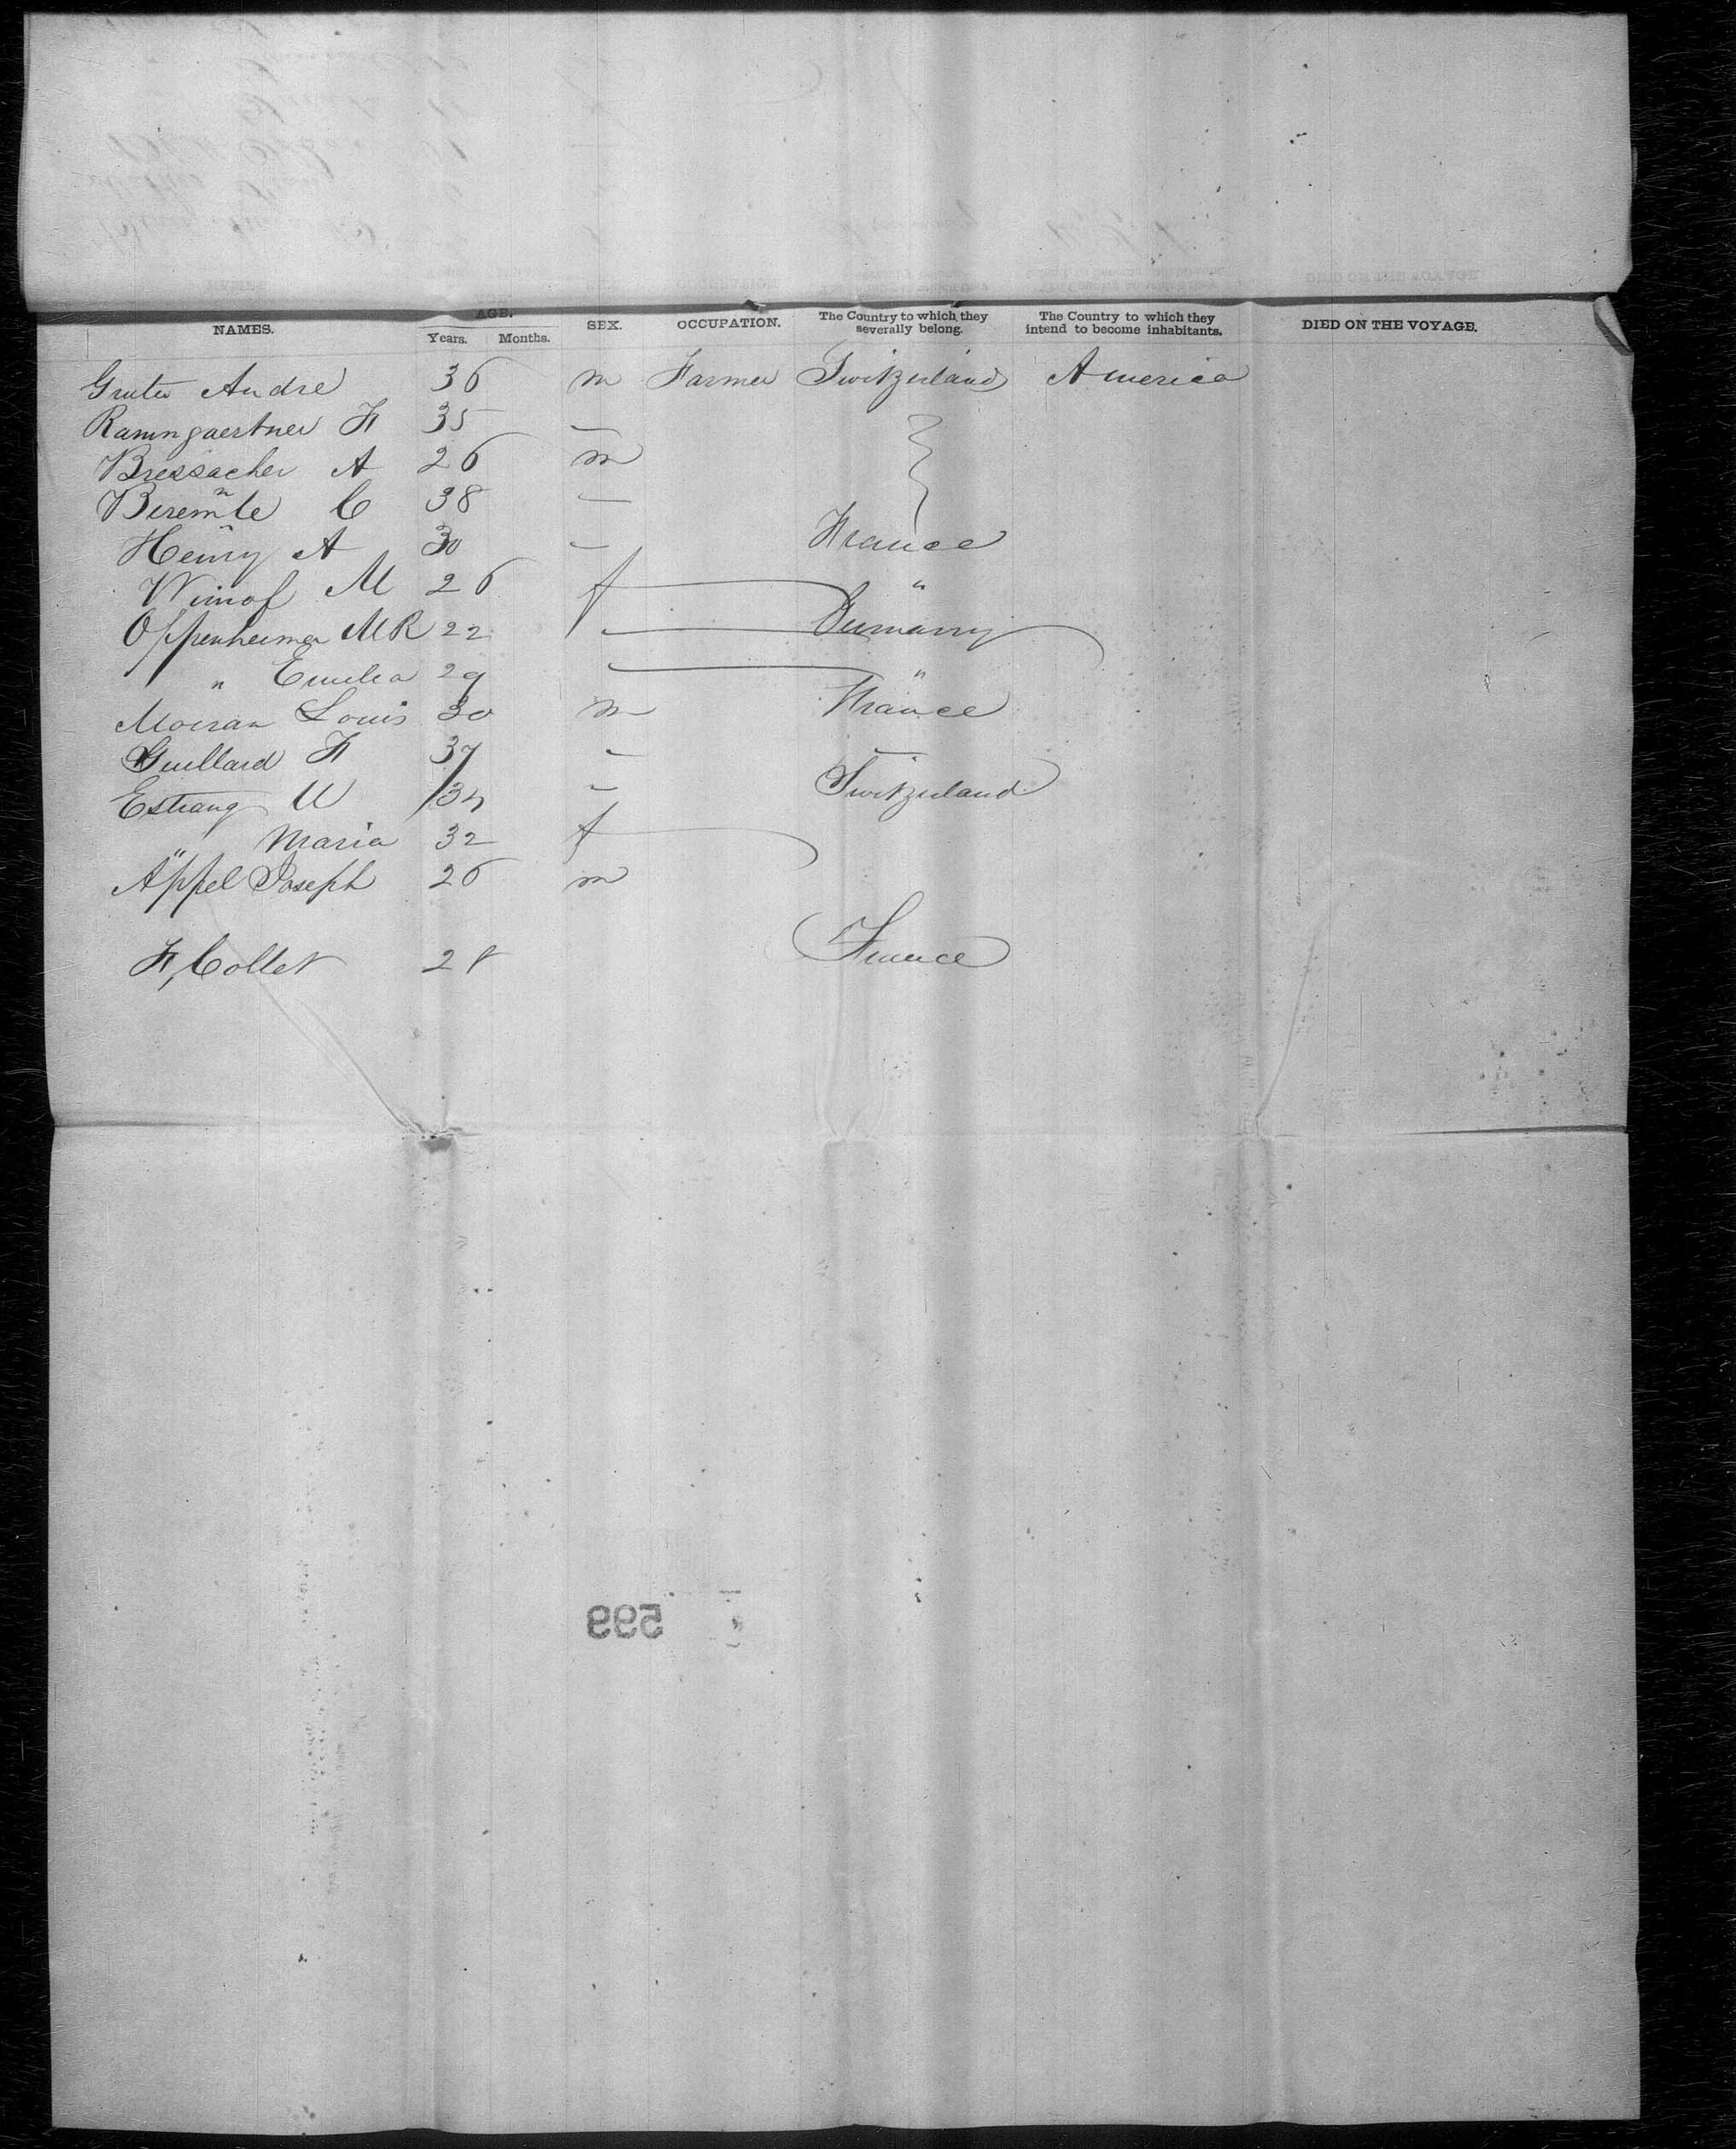 NAMES. AGE. SEX. OCCUPATION. The Country to which they severally belong. The Country to which they intend to become inhabitants. DIED ON THE VOYAGE.
Years. Months.
Andre 36 m Farmer Switzerland America
F 35 —
Bressacher A 26 m
C 38 —
Henry A 30 — France
M 26 f "
Oppenheimer MR 22 — Germany
" Emilia 29 — "
Louis 30 m France
Guillard F 37 — —
Estrang U 34 — Switzerland
" Maria 32 f
Appel Joseph 26 m
F, Collet 28 France
599